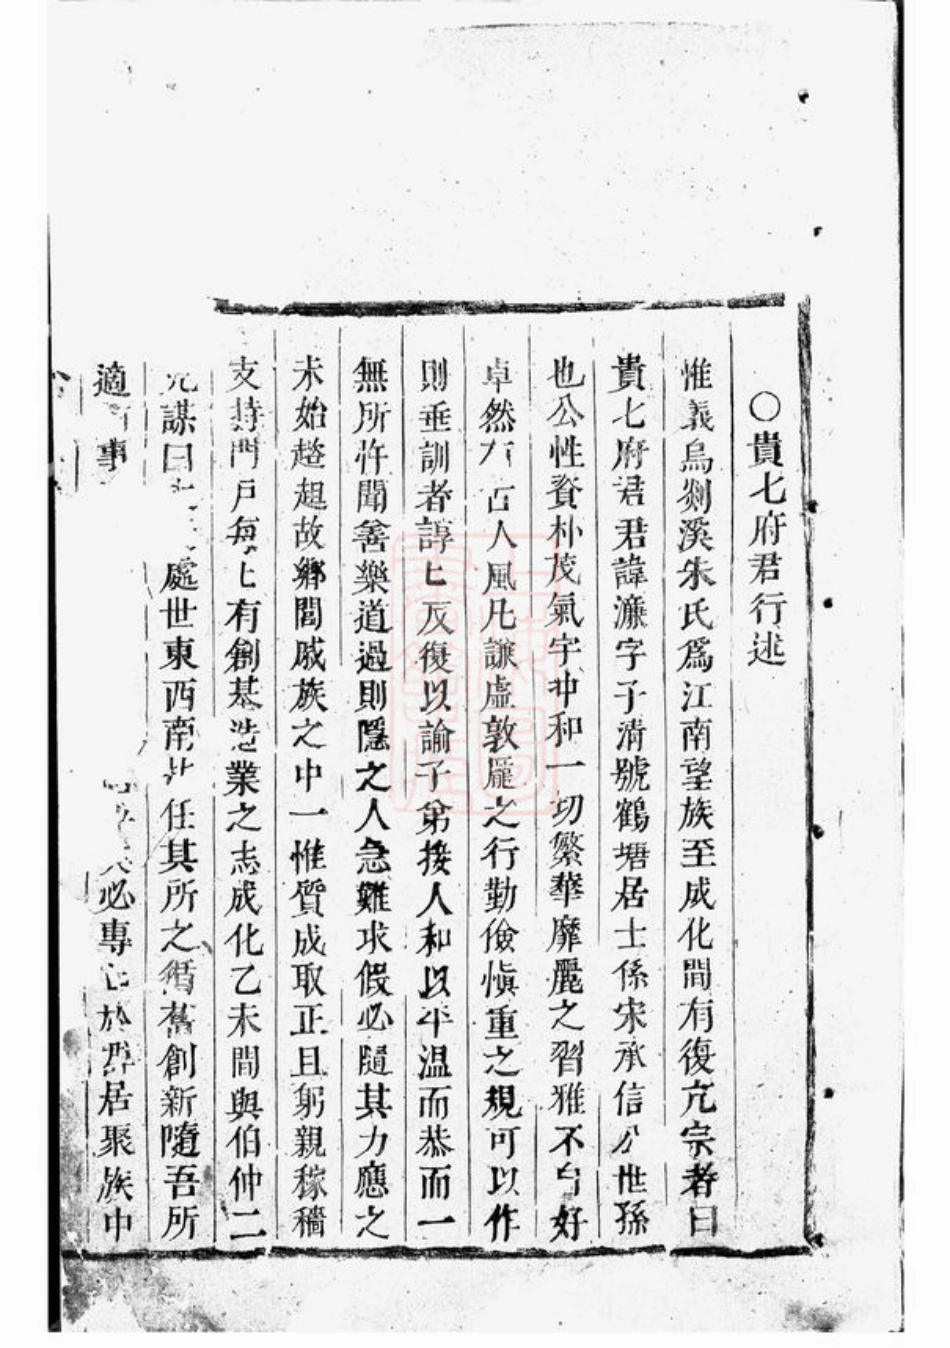 ○貴七府君行述
惟義烏剡溪朱氏爲江南望族至成化間有復亢宗者曰
貴七府君君諱濂字子清號鶴塘居士係宋承信公世孫
也公性資朴茂氣宇冲和一切繁華靡麗之習雅不自好
卓然有古人風凡謙虛敦龐之行勤儉慎重之規可以作
則垂訓者諄匕反復以諭子弟接人和以平温而恭而一
無所忤聞善樂道過則隱之人急難求假必隨其力應之
未始趑趄故鄉閭戚族之中一惟質成取正且躬親稼穡
支持門戸每匕有創基造業之志成化乙未間與伯仲二
兄謀曰處世東西南北任其所之循舊創新隨吾所
適事必專於群居聚族中